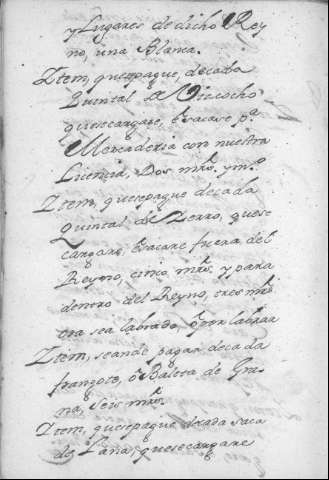 y Lugares de dicho Rey
no, una Blanca.
Item, que se pague, de cada
Quintal de Vizcocho
que se cargare, ò sacare pª
Mercaderia con nuestra
Licencia, Dos mrs. y mº
Item, que se pague de cada
Quintal de Zerro, que se
cargare, ò sacare fuera del
Reyno, cinco mrs. y para
dentro del Reyno, tres mrs
ora sea labrado, ò por labrar
Item, se ande pagar de cada
frangote, ò Baleta de Gra
na, seis mrs.
Item, que se pague de cada saca
de Lana, que se cargare